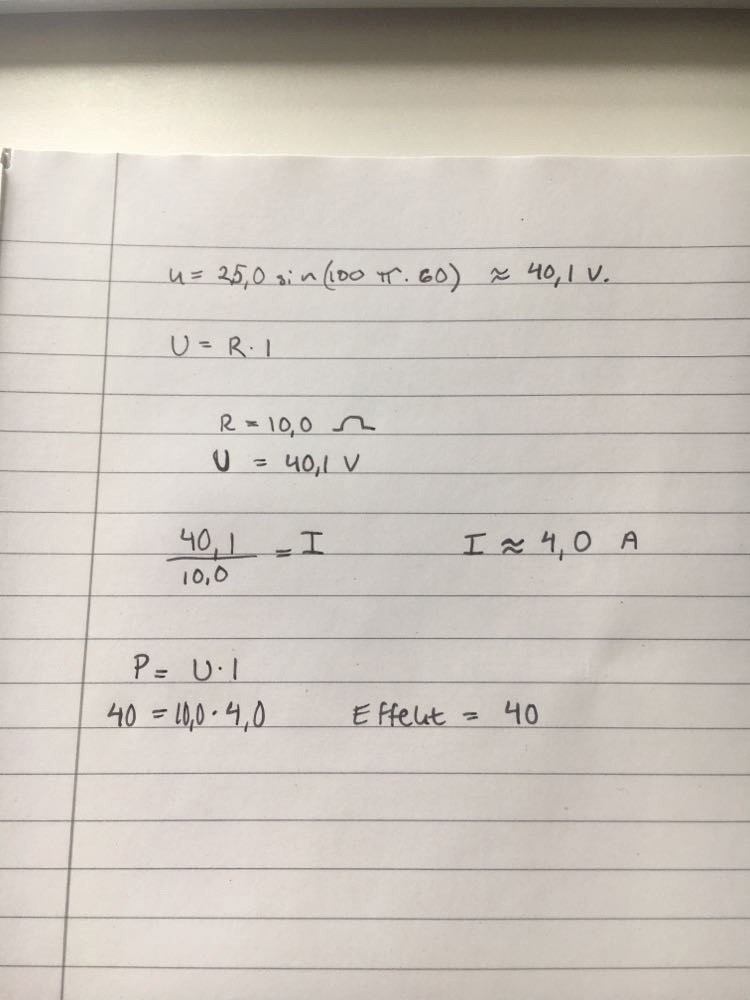 u = 25,0 sin(100 π · 60) ≈ 40,1 V.
U = R · I
R = 10,0 Ω
U = 40,1 V
40,1 / 10,0 = I I ≈ 4,0 A
P = U · I
40 = 10,0 · 4,0 Effekt = 40